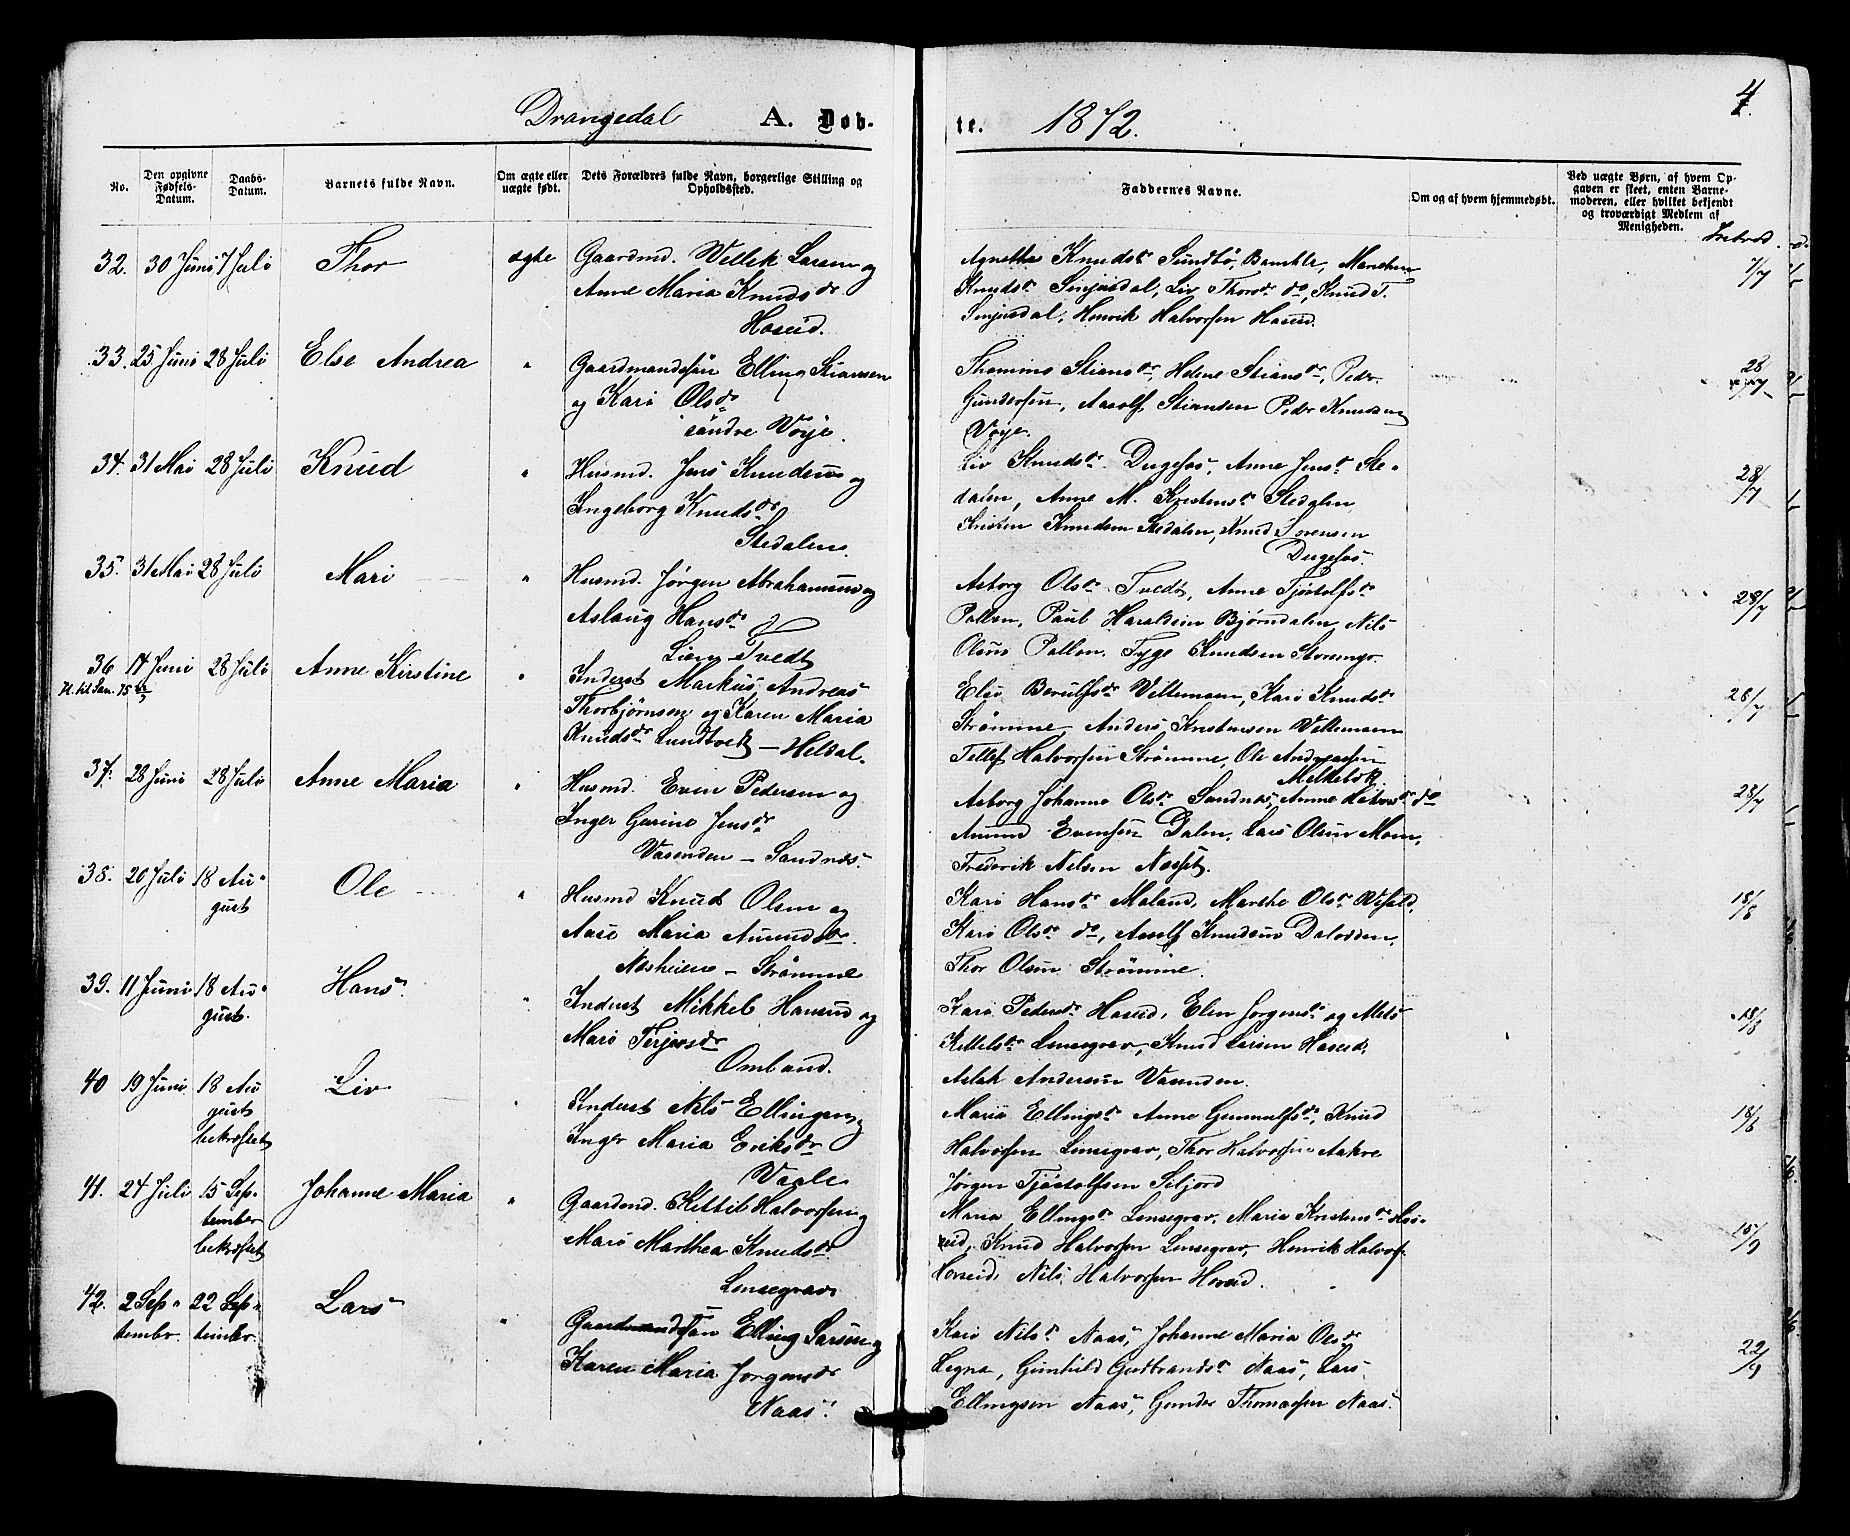 Drangedal A. Døb-
te. 1872.
4
No.
Den opgivne Fødsels-Datum.
Daabs-Datum.
Barnets fulde Navn.
Om ægte eller uægte født.
Dets Forældres fulde Navn, borgerlige Stilling og Opholdssted.
Faddernes Navne.
Om og af hvem hjemmedøbt.
Ved uægte Børn, af hvem Op-
gaven er skeet, enten Barne-
moderen, eller hvilket bekjendt
og troværdigt Medlem af
Menigheden.
32. 30 Juni 7 Juli Thor ægte Gaardmd. Vellek Larsen og
Anne Maria Knudsdr
Hoseid.
Agnethe Knudsdr Sundbø, Bamble, Marthe
Knudsdr Sinjusdal, Liv Thorsdr do, Knud T.
Sinjusdal, Henrik Halvorsen Hoseid.
7/7
33. 25 Juni 28 Juli Else Andrea " Gaardmandssøn Elling Stiansen
og Kari Olsdr
søndre Voje.
Thomine Stiansdr, Helene Stiansdr, Peder
Gundersen, Aasolf Stiansen Peder Knudsen
Voje.
28/7
34. 31 Mai 28 Juli Knud " Husmd. Jens Knudsen og
Ingeborg Knudsdr
Stedalen.
Liv Knudsdr Dugefos, Anne Jensdr Ste-
dalen, Anne M. Kristensdr Stedalen
Kristen Knudsen Stedalen, Knud Sorensen
Dugefos.
28/7
35. 31 Mai 28 Juli Mari " Husmd. Jørgen Abrahamsen og
Aslaug Hansdr
Lien - Tvedt
Asborg Olsdr Tvedt, Anne Tjøstolfsdr
Pollen, Paul Haraldsen Bjørndalen, Nils
Olsen Pollen, Tyge Knudsen Storemyr.
28/7
36 14 Juni 28 Juli Anne Kirstine " Inderst Markus Andreas
Thorbjørnsen og Karen Maria
Knudsdr Lundbæk - Heldal.
Else Berulfsdr Vellemoen, Kari Knudsdr
Strømme, Anders Kristensen Vellemoen
Tellef Halvorsen Strømme, Ole Andreassen
Melkebæk
28/7
37. 28 Juni 28 Juli Anne Maria " Husmd. Even Pedersen og
Inger Gurine Jensdr
Vasenden - Sandnæs.
Asborg Johanne Olsdr Sandnæs, Anne Halvorsdr do
Amund Evensen Dalen, Lars Olsen Moen,
Frederik Nilsen Næset.
28/7
38. 20 Juli 18 Au-
gust Ole " Husmd Knud Olsen og
Aase Maria Amundsdr
Næsheien - Strømme
Kari Hansdr Moland, Marthe Olsdr
Kari Olsdr do, Aasolf Knudsen Dalodden,
Thor Olsen Strømme.
18/8
39. 11 Juni 18 Au-
gust. Hans " Inderst Mikkel Hansen og
Mari Terjersdr
Omland.
Kari Pedersdr Hoseid, Elen Jorgensdr og
Kittelsdr Lensegrav, Knud Larsen Hoseid,
Aslak Andersen Vasenden.
18/8
40 19 Juni 18 Au
gust
bekræftet Liv " Inderst Nils Ellingsen og
Inger Maria Eriksdr
Vaale
Maria Ellingsdr Anne Gunnulfsdr, Knud
Halvorsen Lensegrav, Thor Halvorsen Aakre
Jørgen Tjøstolfsen Siljord
18/8
41. 24 Juli 15 Sep-
tember
bekræftet Johanne Maria " Gaardmd. Kittil Halvorsen og
Mari Marthea Knudsdr
Lensegrav
Maria Ellingsdr Lensegrav, Maria Kristensdr Hos-
eid, Knud Halvorsen Lensegrav, Henrik Halvors.
Hoseid, Nils Halvorsen Hoseid.
15/9
42. 2 Sep-
tember. 22 Sep-
tember. Lars " Gaardmandssøn Elling Larsen og
Karen Maria Jorgensdr
Naas.
Kari Nilsdr Naas, Johanne Maria Olsdr
Legne, Gunhild Gudbrandsdr Naas, Lars
Ellingsen Naas, Gunder Thomassen Naas.
22/9